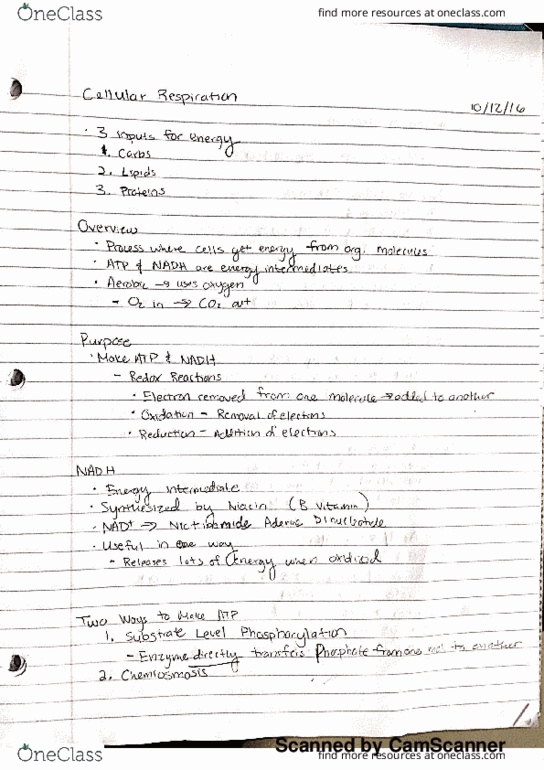 OneClass
find more resources at oneclass.com
Cellular Respiration
10/12/16
· 3 inputs for energy
1. Carbs
2. Lipids
3. Proteins
Overview
· Process where cells get energy from org. molecules
· ATP & NADH are energy intermediates
· Aerobic → uses oxygen
- O2 in → CO2 out
Purpose
· Make ATP & NADH
- Redox Reactions
· Electron removed from one molecule → added to another
· Oxidation - Removal of electrons
· Reduction - Addition of electrons
NADH
· Energy intermediate
· Synthesized by Niacin (B vitamin)
· NAD+ →
· Useful in one way
- Releases lots of energy when oxidized
Two Ways to Make ATP
1. Substrate Level Phosphorylation
- Enzyme directly transfers Phosphate from one mol to another
2. Chemiosmosis
Scanned by CamScanner
OneClass
find more resources at oneclass.com